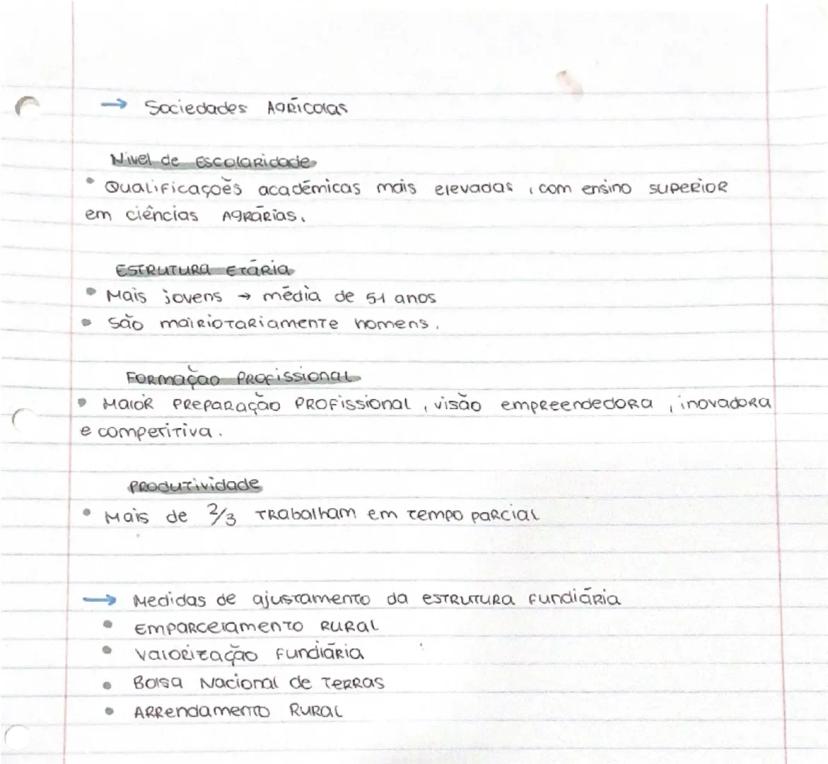 → Sociedades Agrícolas
Nivel de Escolaridade
• Qualificações académicas mais elevadas, com ensino superior
em ciências Agrárias.
Estrutura Etária
• Mais jovens → média de 51 anos
• São mairiotariamente homens.
Formação Profissional
• Maior preparação profissional, visão empreendedora, inovadora
e competitiva.
Produtividade
• Mais de 2/3 trabalham em tempo parcial
→ Medidas de ajustamento da estrutura fundiária
• Emparcelamento rural
• Valorização fundiária
• Bolsa Nacional de Terras
• Arrendamento Rural